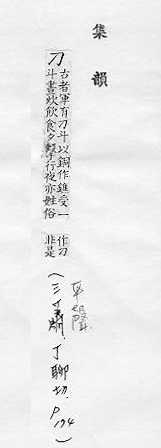 集韻
刀
古者軍有刀斗以銅作鐎受一
斗晝炊飲食夕擊行夜亦姓俗
作刀
非是
平聲
(三蕭,丁聊切,P174)